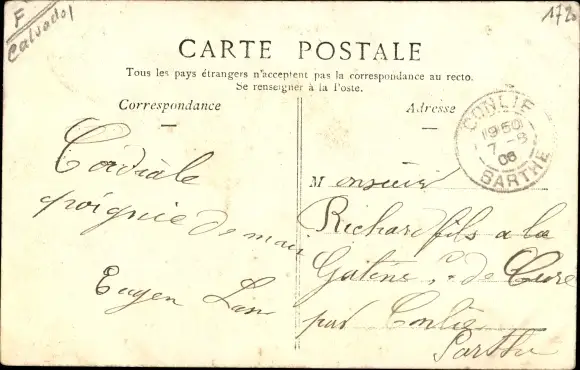 F
Calvados
172
CARTE POSTALE
Tous les pays étrangers n'acceptent pas la correspondance au recto.
Se renseigner à la Poste.
Correspondance
Adresse
CONLIE
19 50
7 - 8
06
SARTHE
Cordiale
poignée de main
Eugen
Monsieur
Richard fils a la
de Cure
par Conlie
Sarthe